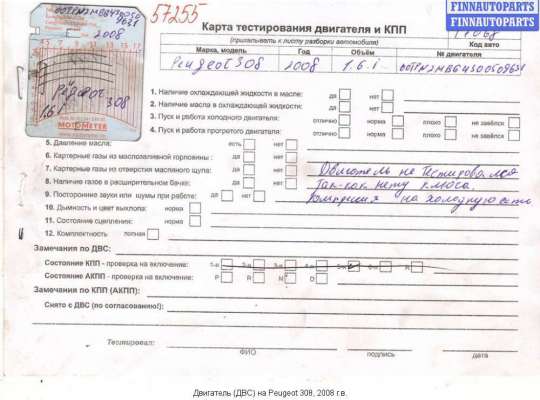 FINNAUTOPARTS
FINNAUTOPARTS
FINNAUTOPARTS
57255
2008
Peugeot 308
1,6 i
MOTOMETER
Карта тестирования двигателя и КПП
(прикалывать к листу разборки автомобиля)
Код авто
Марка, модель Год Объём № двигателя
Peugeot 308 2008 1.6 i
1. Наличие охлаждающей жидкости в масле: да нет
2. Наличие масла в охлаждающей жидкости: да нет
3. Пуск и работа холодного двигателя: отлично норма плохо не завёлся
4. Пуск и работа прогретого двигателя: отлично норма плохо не завёлся
5. Давление масла: есть нет
6. Картерные газы из маслозаливной горловины : да нет
7. Картерные газы из отверстия масляного щупа: да нет
8. Наличие газов в расширительном бачке: да нет
9. Посторонние звуки или шумы при работе: да нет
10. Дымность и цвет выхлопа: норма
11. Состояние сцепления: норма
12. Комплектность полная
не тестировался
так-как нету ключа.
на холодную есть
Замечания по ДВС:
Состояние КПП - проверка на включение: 1-я 2-я 3-я 4-я 5-я 6-я R
Состояние АКПП - проверка на включение: P R N D
Замечания по КПП (АКПП):
Снято с ДВС (по согласованию!):
Тестировал:
ФИО подпись дата
Двигатель (ДВС) на Peugeot 308, 2008 г.в.